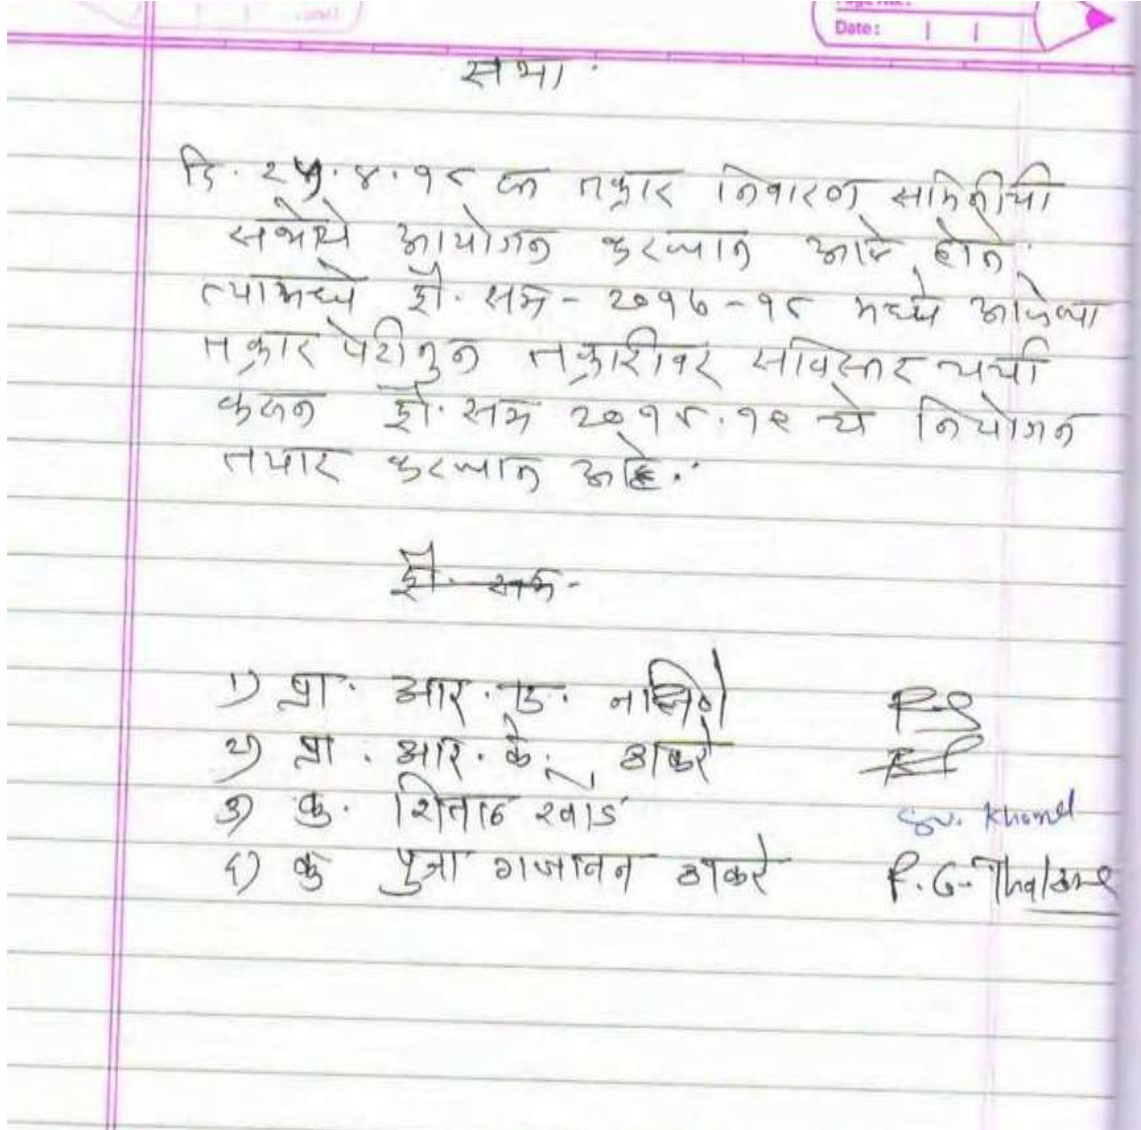 Date:
सभा.
दि. २५.४.१८ ला तक्रार निवारण समितीची
सभेचे आयोजन करण्यात आले होते.
त्यामध्ये शै. सत्र - २०१७-१८ मध्ये आलेल्या
तक्रार पेटीतुन तक्रारीवर सविस्तर चर्चा
करुन शै. सत्र २०१८.१९ चे नियोजन
तयार करण्यात आहे.
शै. सत्र -
१) प्रा. आर. ए.
२) प्रा. आर. के. ठाकरे
३) कु. शितल खोंड
४) कु पुजा गजानन ठाकरे P.G. Thakare